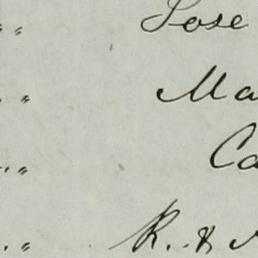 " Jose
" Ma
" Ca
" R. &